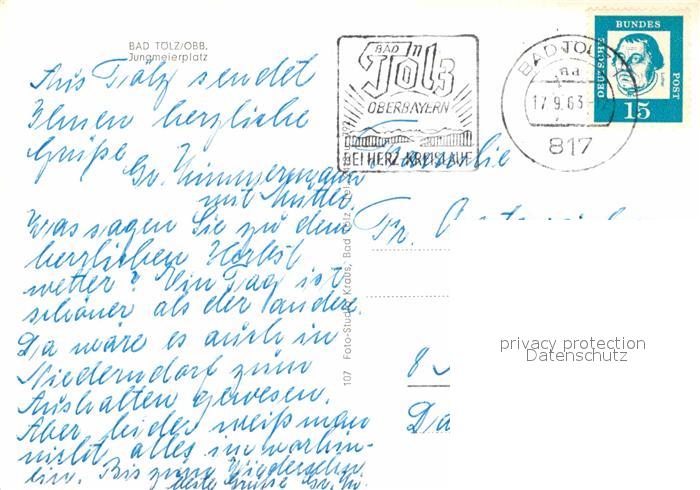 BAD TÖLZ/OBB.
Jungmeierplatz
Aus Tölz sendet
Ihnen herzliche
Grüße
Gv. Zimmermann
mit Mutter.
Was sagen Sie zu dem
herrlichen Herbst
wetter? Ein Tag ist
schöner als der andere.
Da wäre es auch in
Niederndorf zum
Aushalten gewesen.
Aber leider weiß man
nicht alles im vorhin-
ein. Bis zum Wiedersehen
beste Grüße
BAD
in
Tölz
OBERBAYERN
BEI HERZ-KREISLAUF
BAD TÖLZ
17.9.63
817
DEUTSCHE
BUNDES
POST
15
Familie
Fr.
8
Da
107 Foto-Studio Kraus, Bad Tölz,
privacy protection
Datenschutz